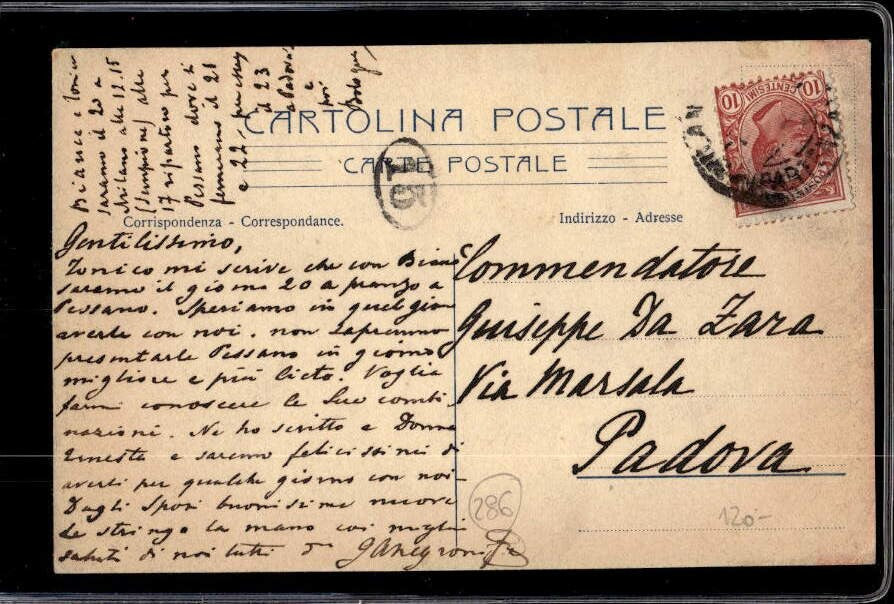 CARTOLINA POSTALE
CARTE POSTALE
Corrispondenza - Correspondance.
Indirizzo - Adresse
10 CENTESIMI 10
15
Bianca e Tonico
saranno il 20 a
Milano alle 12.15
(Sempione) alle
17 ripartono per
Pessano dove si
fermano il 21
e 22,
il 23
a Padova
e
poi
Bologna
Gentilissimo,
Tonico mi scrive che con Bianca
saranno il giorno 20 a pranzo a
Pessano. Speriamo in quel giorno
averla con noi. non sapremmo
presentarle Pessano in giorno
migliore e più lieto. Voglia
farmi conoscere le Sue combi-
nazioni. Ne ho scritto a Donna
Ernesta e saremo felicissimi di
averli per qualche giorno con noi.
Dagli Sposi buonissime nuove
Le stringo la mano coi migliori
saluti di noi tutti
Commendatore
Giuseppe Da Zara
Via Marsala
Padova
286
120-